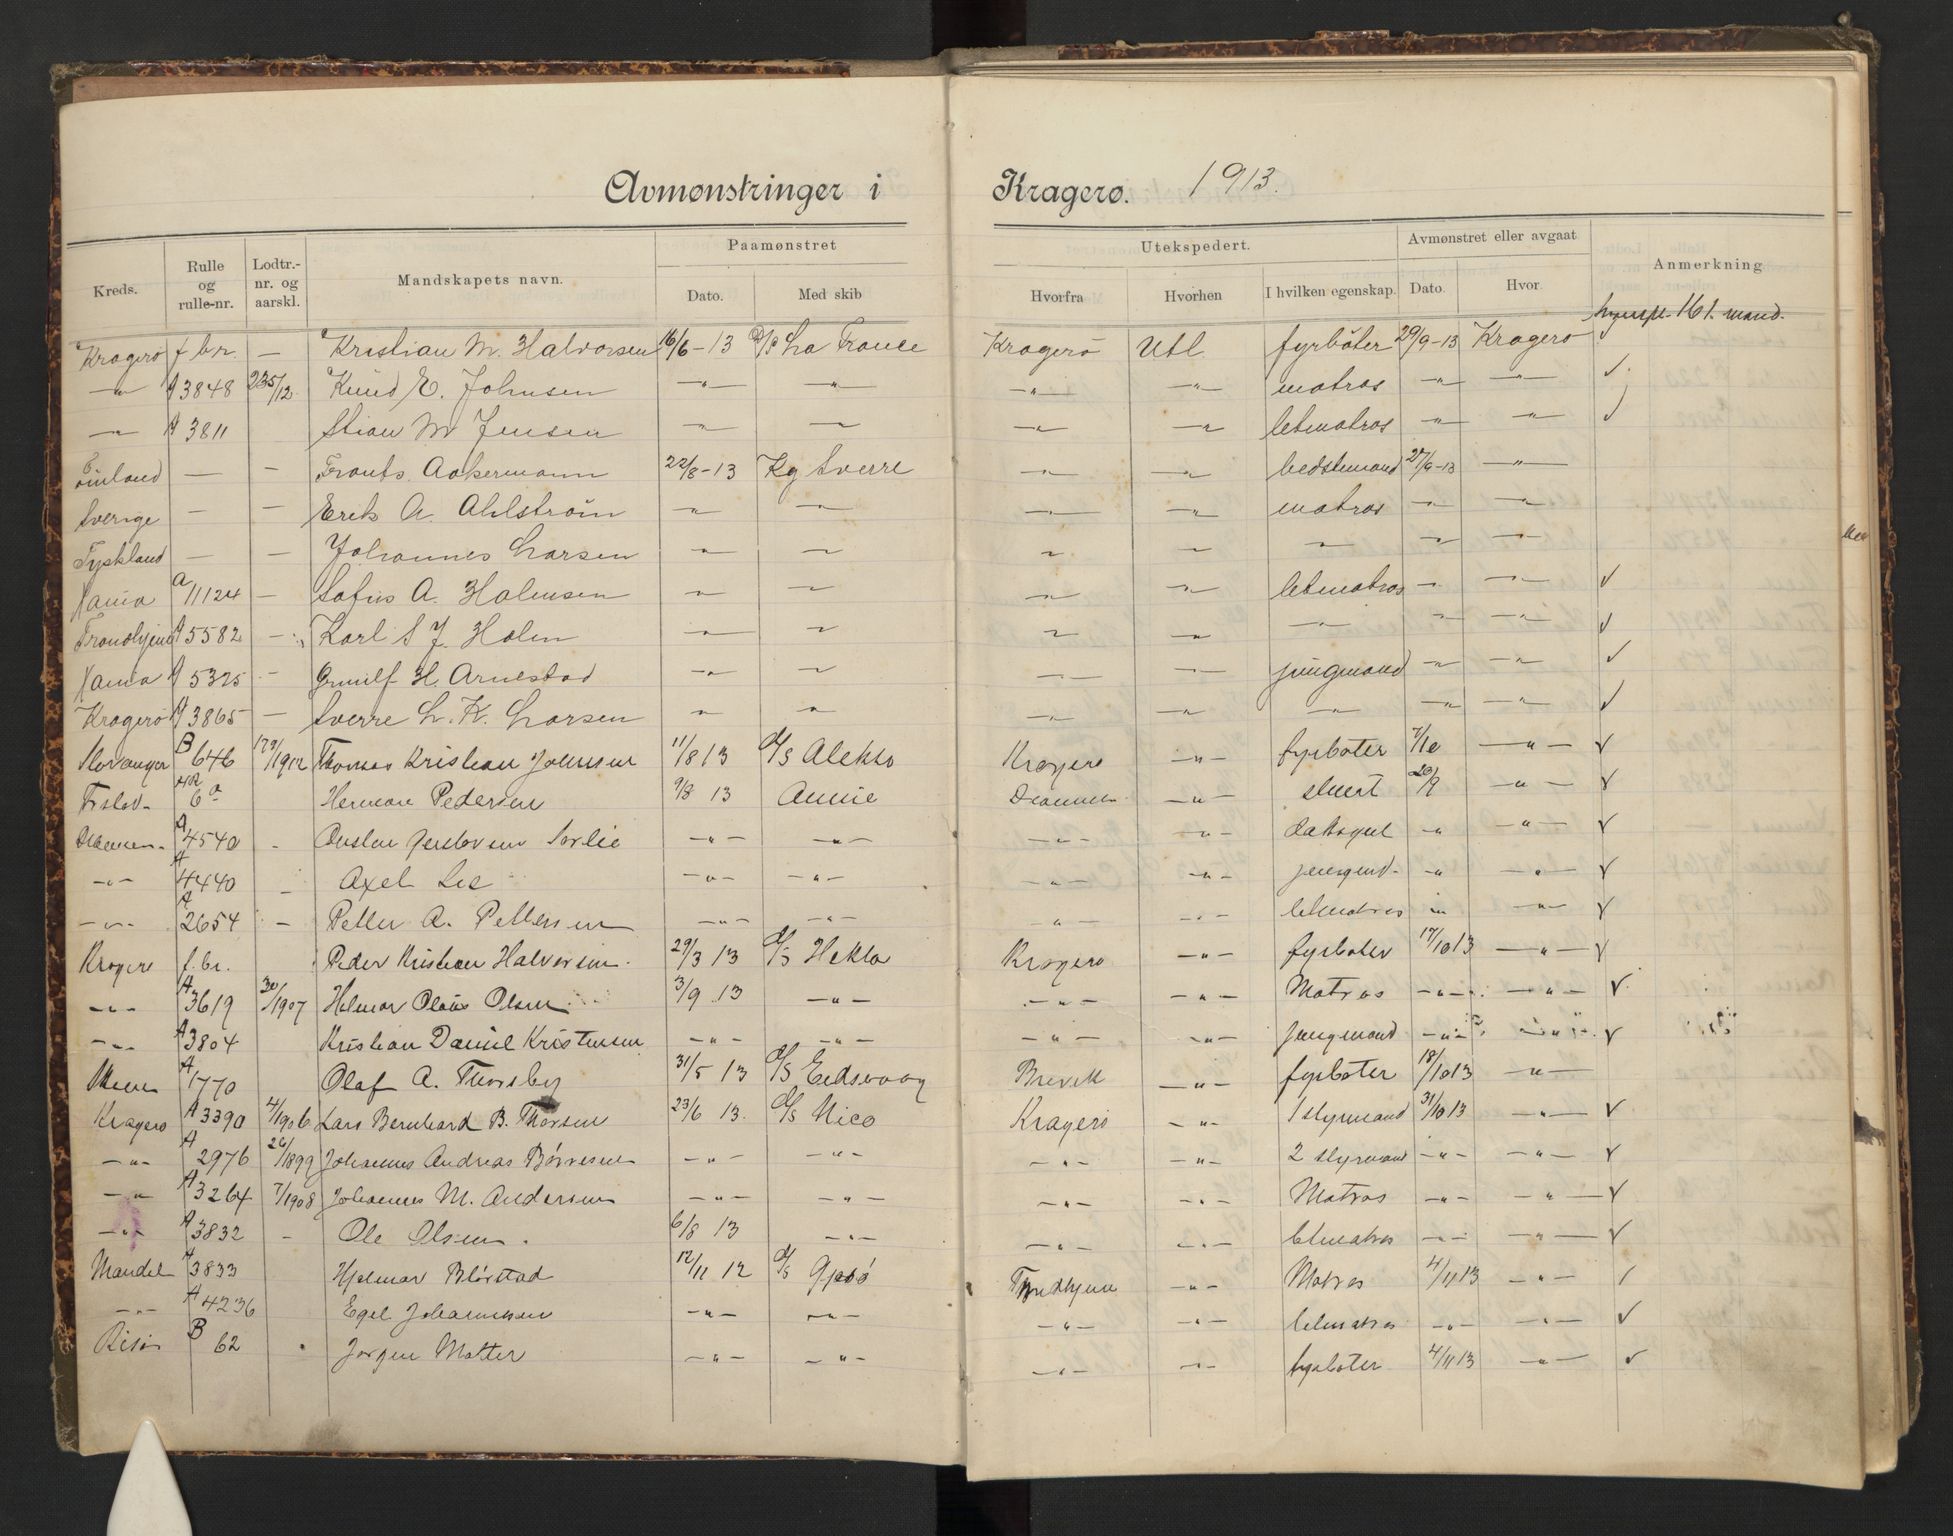 Avmønstringer i Kragerø. 1913.
Paamønstret Utekspedert. Avmønstret eller avgaat
Kreds. Rulle og rulle-nr. Lodtr.-nr. og aarskl. Mandskapets navn. Dato. Med skib Hvorfra Hvorhen I hvilken egenskap. Dato. Hvor. Anmerkning
161. mand.
Kragerø f. br. — Kristian M. Halvorsen 16/6-13 D/S La France Kragerø Utl. fyrbøter 29/9-13 Kragerø ✓
—"— A 3848 235/12 Knud E. Johnsen —"— —"— —"— —"— matros —"— —"— ✓
—"— A 3811 Stian M Jensen —"— —"— —"— —"— letmatros —"— —"— ✓
Finland — — Frants Aakermann 22/8-13 Kg Sverre —"— —"— bedstemand 27/9-13 —"—
Sverige — — Erik A. Ahlström —"— —"— —"— —"— matros —"— —"—
Tyskland — — Johannes Larsen —"— —"— —"— —"— —"— —"— —"—
Xania A 11124 — Sofus A. Halmsen —"— —"— —"— —"— letmatros —"— —"— ✓
Trondhjem A 5582 — Karl S J. Holm —"— —"— —"— —"— —"— —"— —"— ✓
Xania A 5325 — H. Arnestad —"— —"— —"— —"— jungmand —"— —"— ✓
Kragerø A 3865 — Sverre L. K. Larsen —"— —"— —"— —"— —"— —"— —"— ✓
Stavanger B 646 /1912 Thomas Kristian Johnsen 11/8 13 D/S Alekto Kragerø —"— fyrbøter 7/10 —"— ✓
6 Herman Pedersen 9/8 13 Annie Drammen —"— stuert 20/9 —"— ✓
Drammen A 4540 - Sørlie —"— —"— —"— —"— —"— —"— ✓
—"— A 4440 - Axel Lie —"— —"— —"— —"— jungmd. —"— —"— ✓
—"— A 2654 - Petter A. Pettersen —"— —"— —"— —"— letmatros —"— —"— ✓
Kragerø f. br. Peder Kristian Halvorsen. 29/3 13 D/S Hekla Kragerø —"— fyrbøter 17/10 13 —"— ✓
—"— A 3619 30/1907 Helmar Olaus Olsen 3/9 13 —"— —"— —"— Matros —"— —"— ✓
—"— A 3804 Kristian Daniel Kristensen —"— —"— —"— —"— Jungmand —"— —"— ✓
Skien A 1770 Olaf A. Thorsby 31/5 13 D/S Eidsvaag Brevik —"— fyrbøter 18/10 13 —"—
Kragerø A 3390 4/1906 Lars Bernhard B. Thorsen 23/6 13. D/S Nico Kragerø —"— 1 styrmand 31/10 13 —"— ✓
—"— A 2976 26/1899 Johannes Andreas Børresen —"— —"— —"— —"— 2 styrmand —"— —"— ✓
—"— A 3264 7/1908 Johannes M. Andersen —"— —"— —"— —"— Matros —"— —"— ✓
—"— A 3832 - Ole Olsen. 6/8 13 —"— —"— —"— letmatros —"— —"— ✓
Mandal A 3833 Hjalmar Blørstad 12/11 12 D/S Gjesø Trondhjem —"— Matros 4/11 13 —"— ✓
—"— A 4236 Egil Johannesen —"— —"— —"— —"— letmatros —"— —"— ✓
Risør B 62 Jørgen Motter —"— —"— —"— —"— fyrbøter 4/11 13 —"— ✓